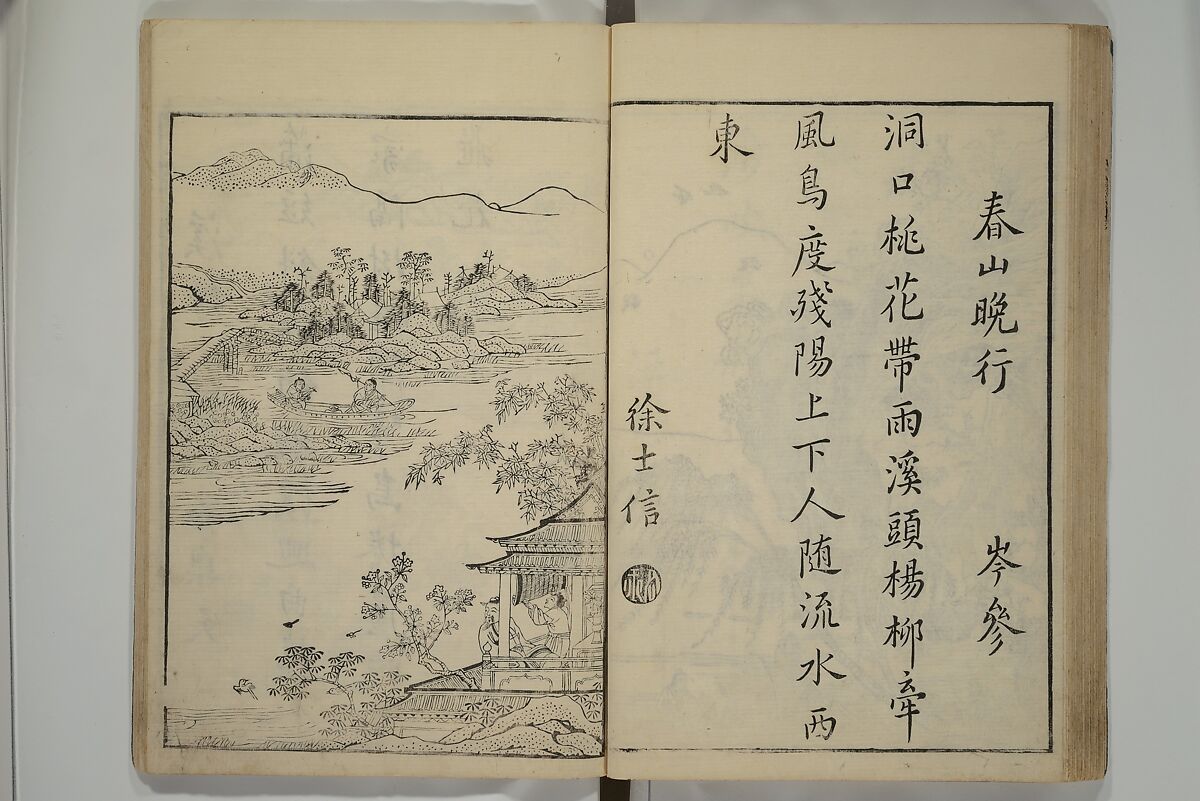 春山晚行 岑參
洞口桃花帶雨溪頭楊柳牽
風鳥度殘陽上下人随流水西
東
徐士信